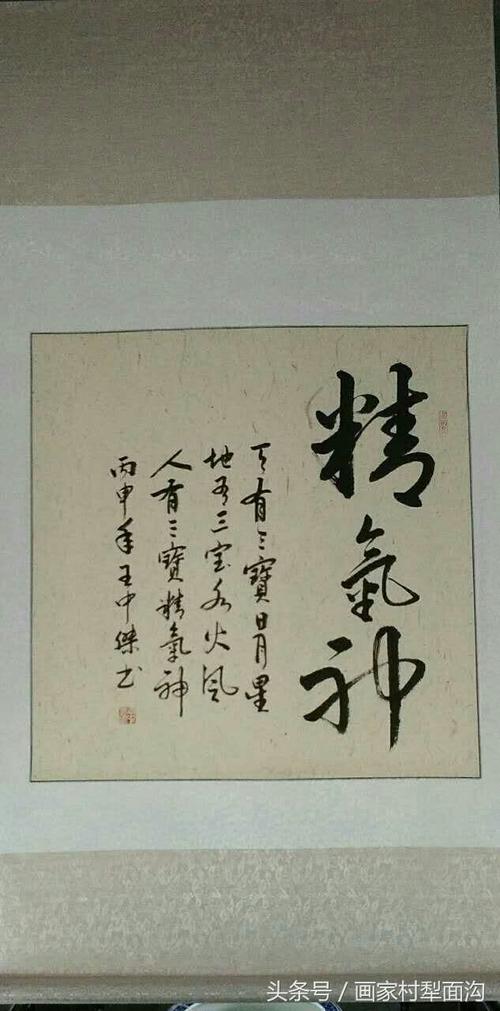 精氣神
天有三寶日月星
地有三宝水火風
人有三寶精氣神
丙申年王中傑书
头条号／画家村犁面沟